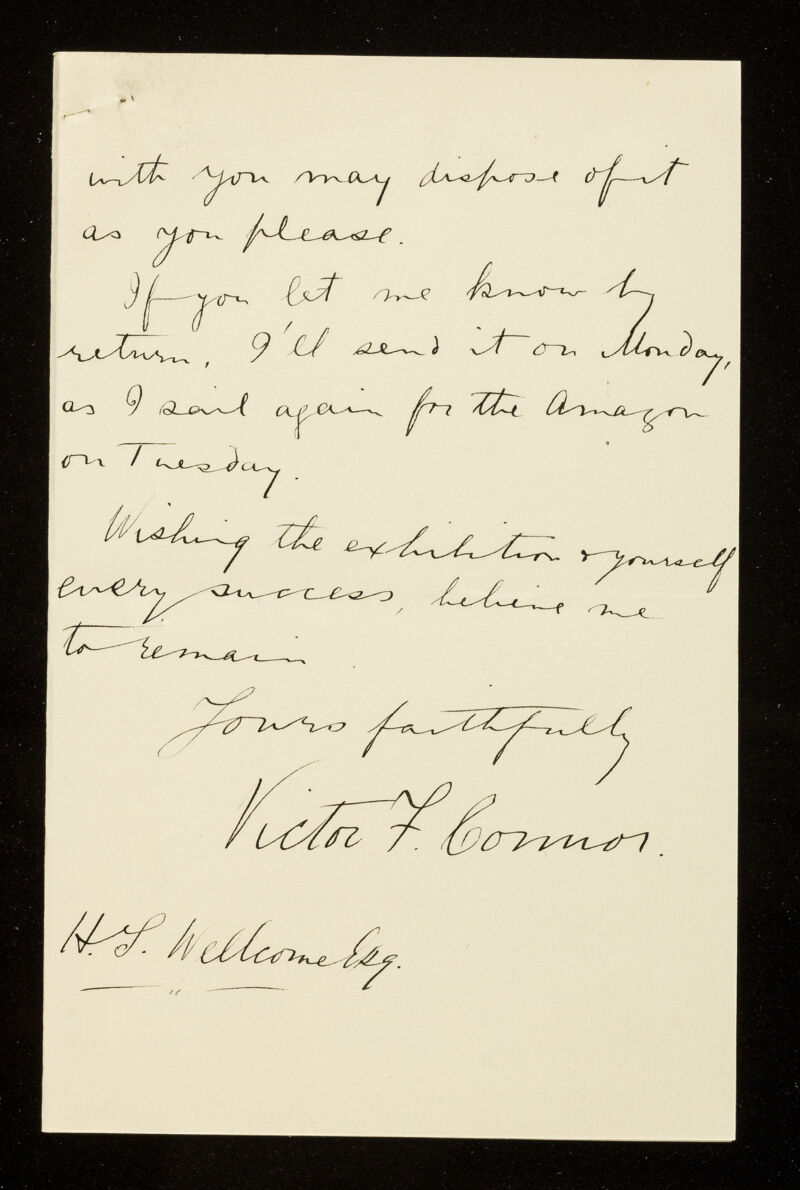 with you may dispose of it
as you please.
If you let me know by
return, I'll send it on Monday,
as I sail again for the Amazon
on Tuesday.
Wishing the exhibition & yourself
every success, believe me
to remain
Yours faithfully
Victor F. Connor.
H. S. Wellcome Esq.